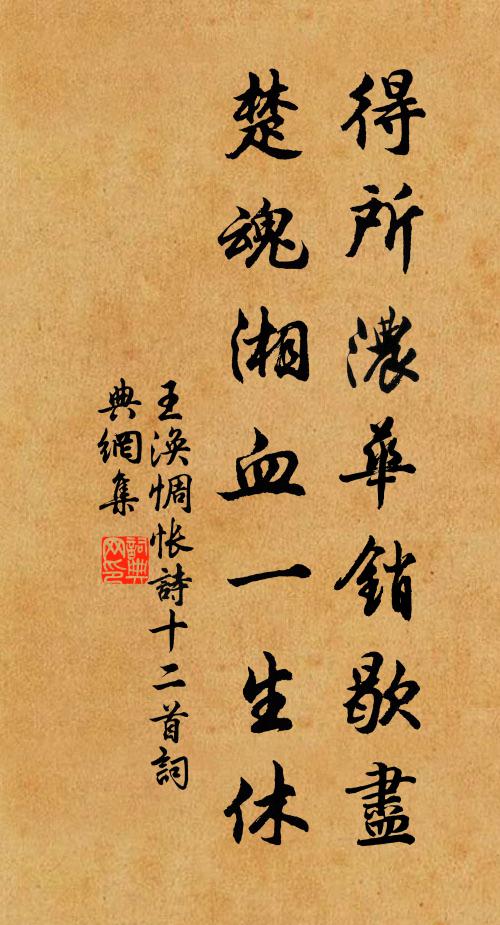 得所濃華銷歇盡
楚魂湘血一生休
王渙惆悵詩十二首詞
典網集
詞典
网印